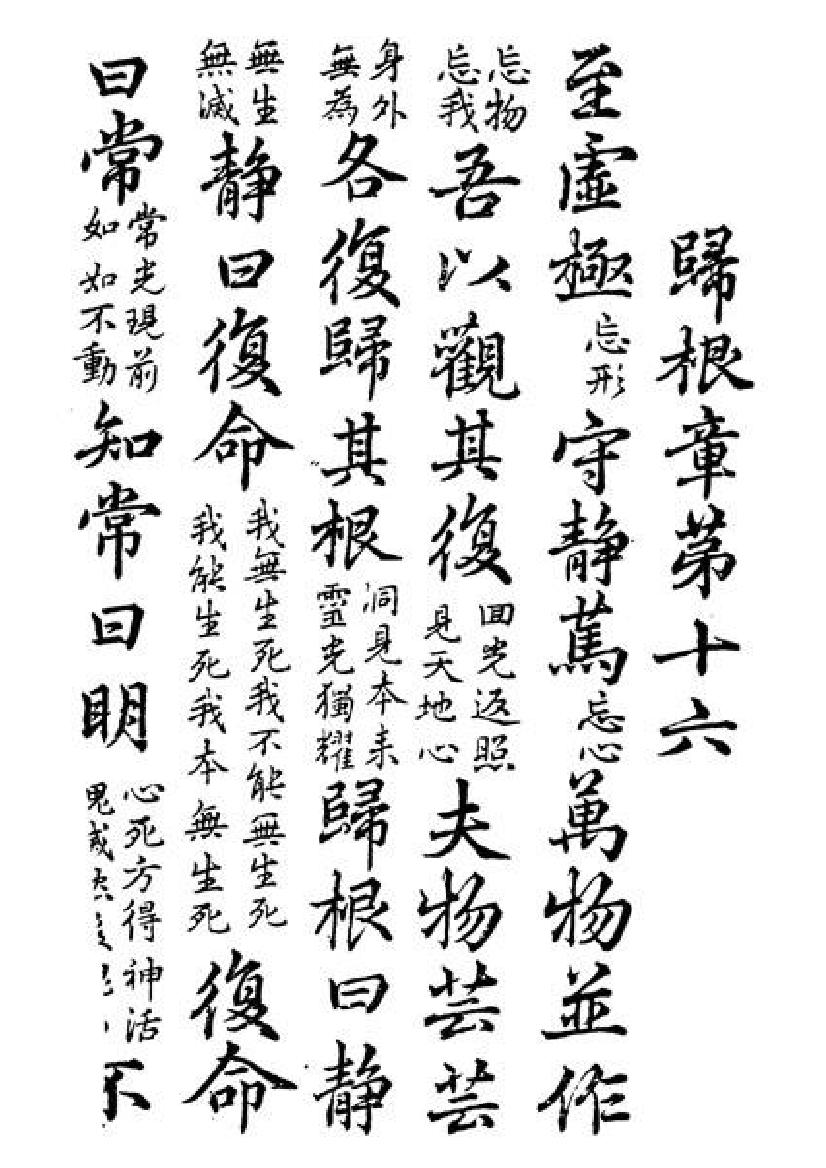 歸根章第十六
至虛極忘形守静篤忘心萬物並作
忘物忘我吾以觀其復回光返照見天地心夫物芸芸
身外無為各復歸其根洞見本來靈光獨耀歸根曰静
無生無滅静曰復命我無生死我不能無生死我能生死我本無生死復命
曰常常光現前如如不動知常曰明心死方得神活不